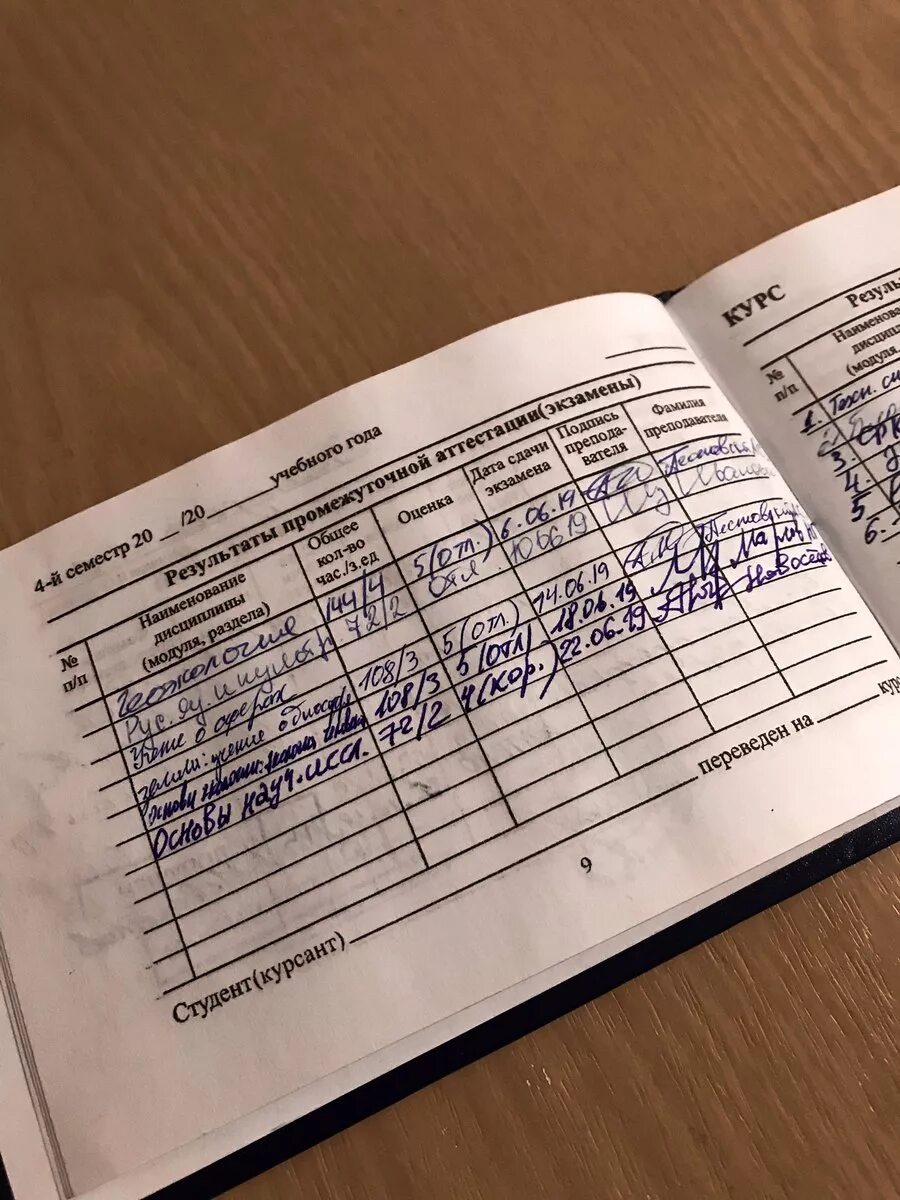 4-й семестр 20 __/20______учебного года
Результаты промежуточной аттестации(экзамены)
№ п/п
Наименование дисциплины (модуля, раздела)
Общее кол-во час./з.ед
Оценка
Дата сдачи экзамена
Подпись препода-вателя
Фамилия преподавателя
Геоэкология 144/4 5(отл.) 6.06.19
Рус. яз. и культ. р. 72/2
Учение о сферах
земли: учение о биосфере 108/3 5(отл.) 14.06.19
Основы 108/3 5(отл) 18.06.19
Основы науч. иссл. 72/2 4(хор.) 22.06.19
Студент(курсант)
переведен на ______ кур
9
КУРС
Резуль
№ п/п
Наименова
дисципли
(модуля,
1. Техн.
3.
4.
5
6.